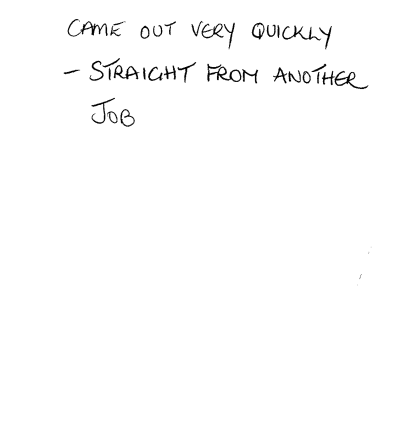 CAME OUT VERY QUICKLY
- STRAIGHT FROM ANOTHER
JOB